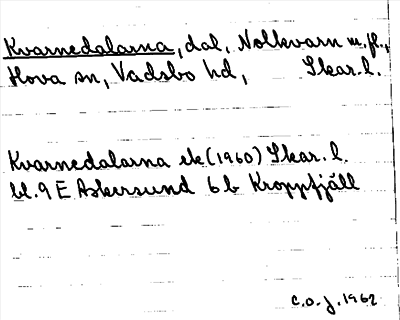 Kvarnedalarna, dal, Nolkvarn m.fl.,
Hova sn, Vadsbo hd, Skar.l.
Kvarnedalarna ek (1960) Skar.l.
bl.9 E Askersund 6 b Kroppfjäll
C.O.J. 1962